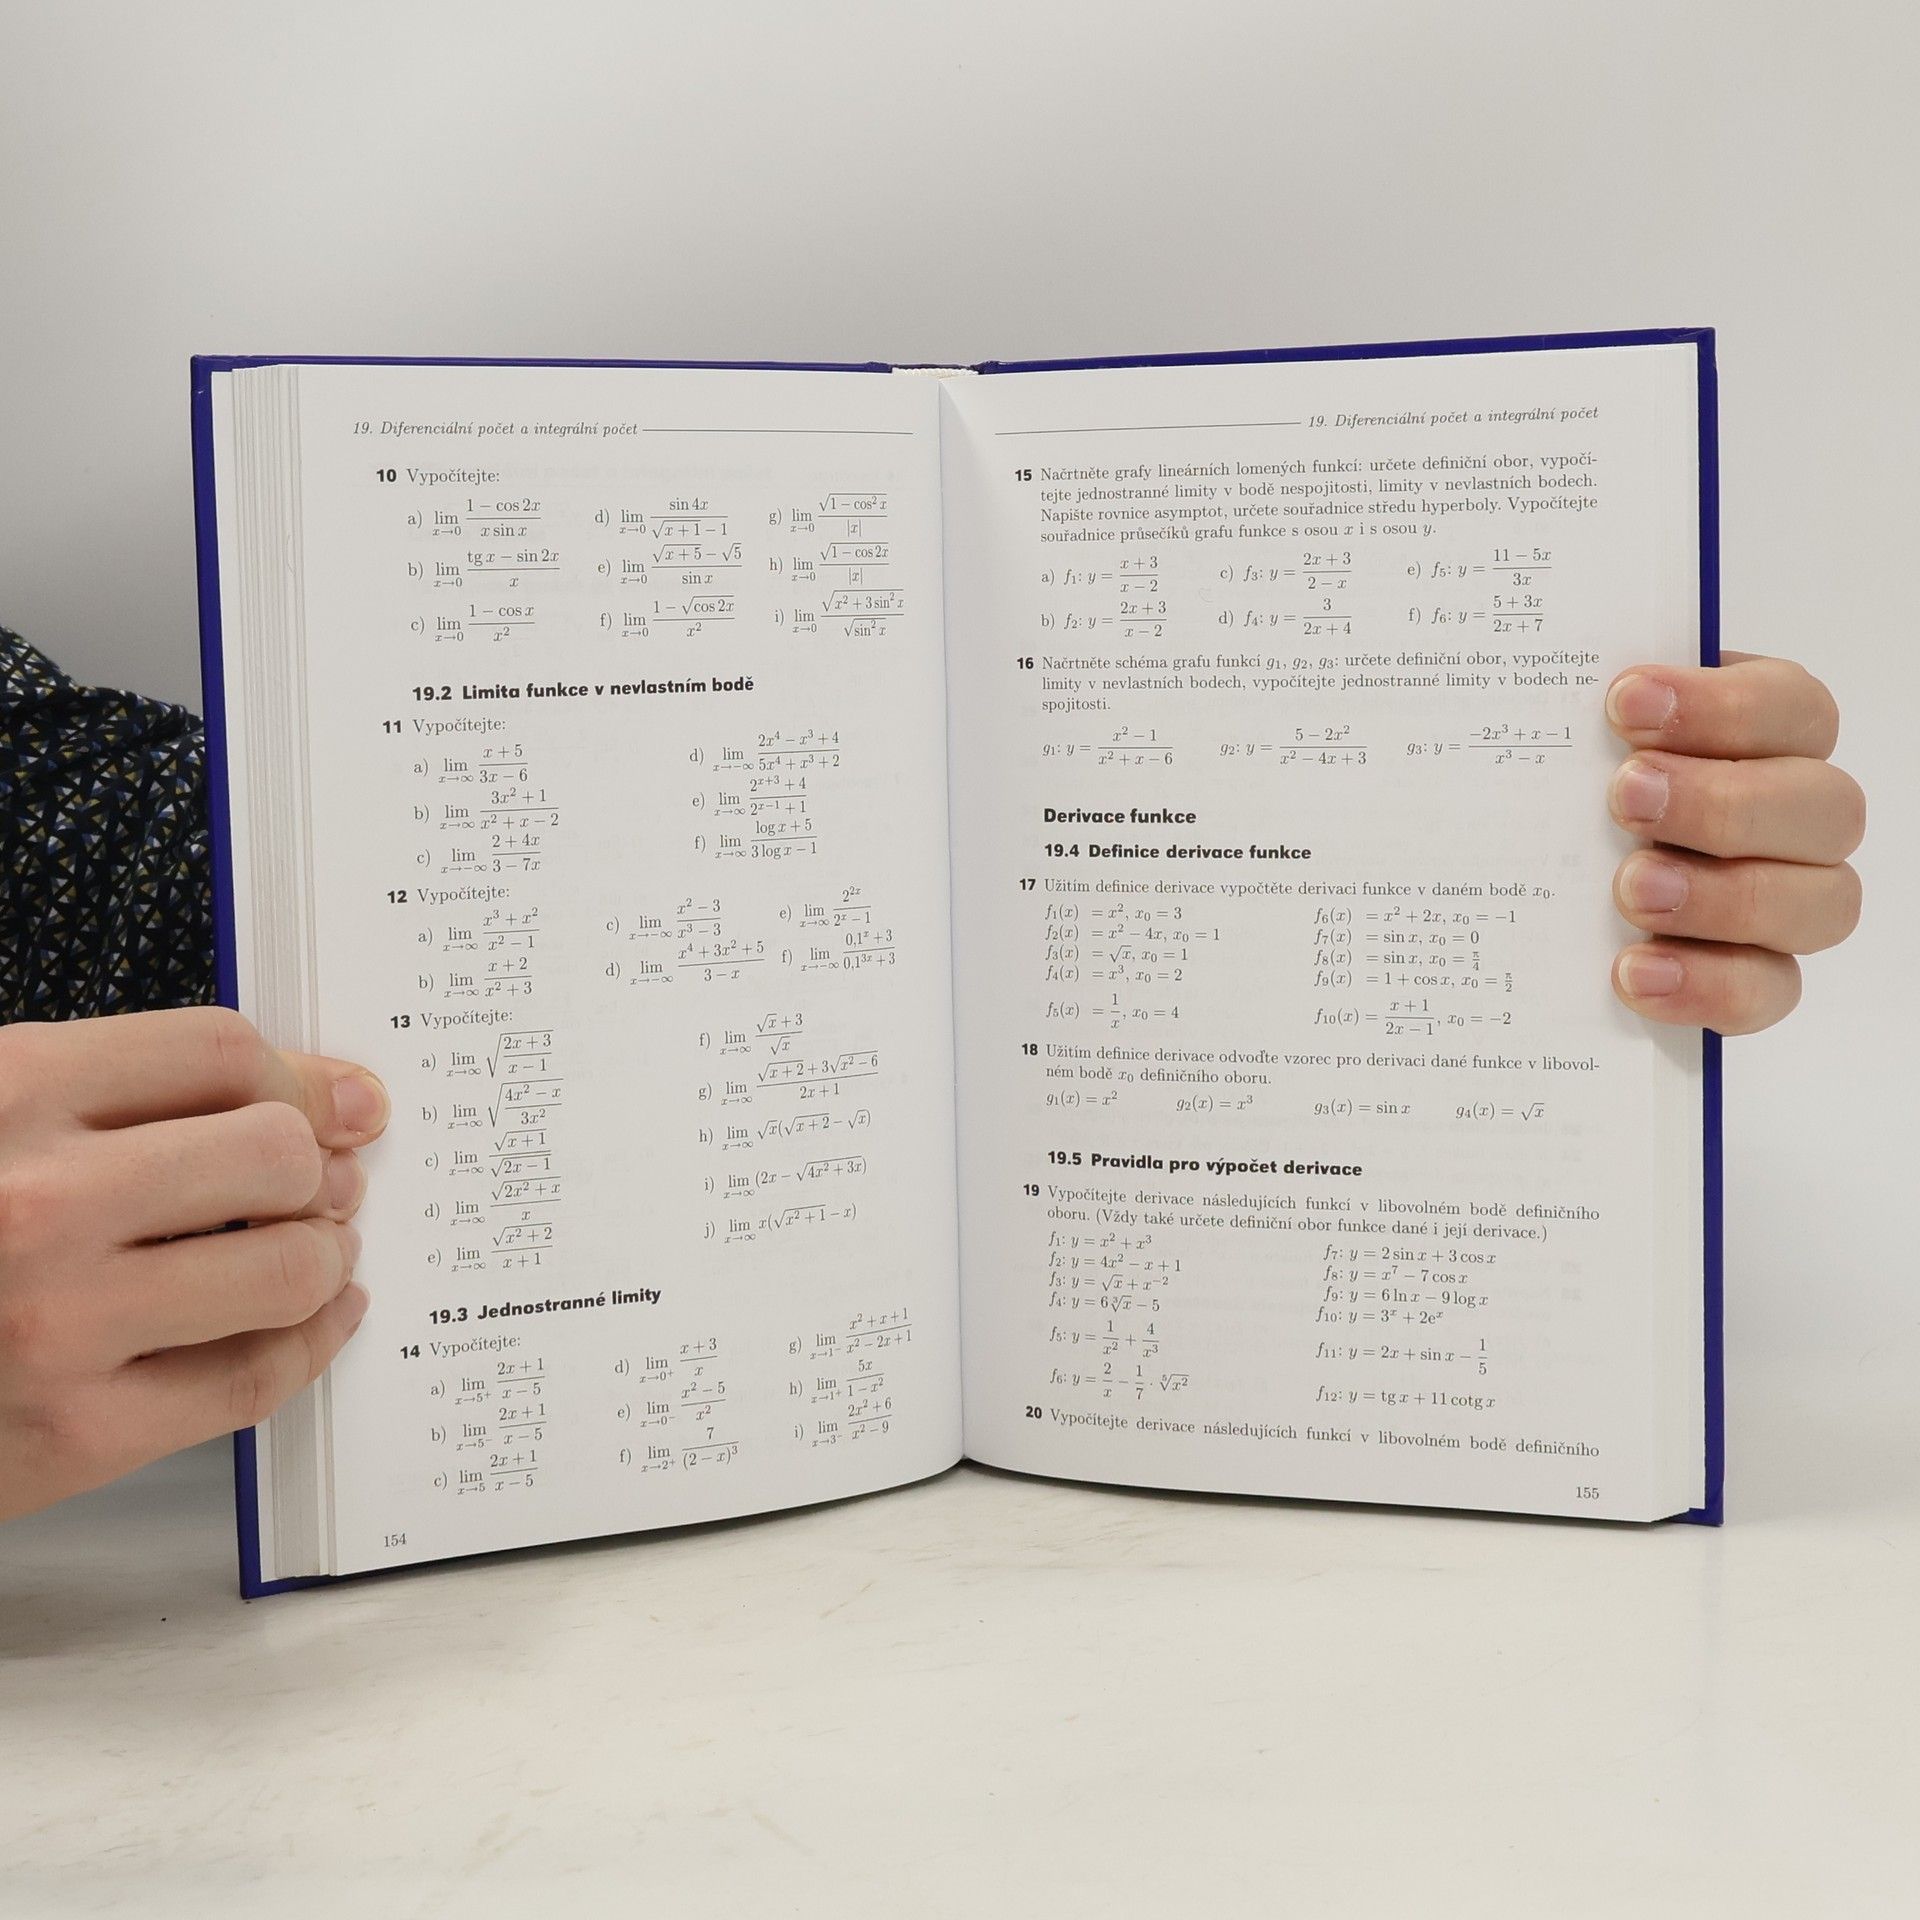 19. Diferenciální počet a integrální počet
10 Vypočítejte:
a) lim x→0 (1 − cos 2x)/(x sin x)
d) lim x→0 (sin 4x)/(√(x + 1) − 1)
g) lim x→0 √(1 − cos² x)/|x|
b) lim x→0 (tg x − sin 2x)/x
e) lim x→0 (√(x + 5) − √5)/(sin x)
h) lim x→0 √(1 − cos 2x)/|x|
c) lim x→0 (1 − cos x)/x²
f) lim x→0 (1 − √(cos 2x))/x²
i) lim x→0 √(x² + 3 sin² x)/√(sin² x)
19.2 Limita funkce v nevlastním bodě
11 Vypočítejte:
a) lim x→∞ (x + 5)/(3x − 6)
d) lim x→−∞ (2x⁴ − x³ + 4)/(5x⁴ + x³ + 2)
b) lim x→∞ (3x² + 1)/(x² + x − 2)
e) lim x→∞ (2^(x+3) + 4)/(2^(x−1) + 1)
c) lim x→−∞ (2 + 4x)/(3 − 7x)
f) lim x→∞ (log x + 5)/(3 log x − 1)
12 Vypočítejte:
a) lim x→∞ (x³ + x²)/(x² − 1)
c) lim x→−∞ (x² − 3)/(x³ − 3)
e) lim x→∞ 2^(2x)/(2^x − 1)
b) lim x→∞ (x + 2)/(x² + 3)
d) lim x→−∞ (x⁴ + 3x² + 5)/(3 − x)
f) lim x→−∞ (0,1^x + 3)/(0,1^(3x) + 3)
13 Vypočítejte:
a) lim x→∞ √((2x + 3)/(x − 1))
f) lim x→∞ (√x + 3)/√x
b) lim x→∞ √((4x² − x)/(3x²))
g) lim x→∞ (√(x + 2) + 3√(x² − 6))/(2x + 1)
c) lim x→∞ √(x + 1)/√(2x − 1)
h) lim x→∞ √x(√(x + 2) − √x)
d) lim x→∞ √(2x² + x)/x
i) lim x→∞ (2x − √(4x² + 3x))
e) lim x→∞ √(x² + 2)/(x + 1)
j) lim x→∞ x(√(x² + 1) − x)
19.3 Jednostranné limity
14 Vypočítejte:
a) lim x→5⁺ (2x + 1)/(x − 5)
d) lim x→0⁺ (x + 3)/x
g) lim x→1⁻ (x² + x + 1)/(x² − 2x + 1)
b) lim x→5⁻ (2x + 1)/(x − 5)
e) lim x→0⁻ (x² − 5)/x²
h) lim x→1⁺ 5x/(1 − x²)
c) lim x→5 (2x + 1)/(x − 5)
f) lim x→2⁺ 7/(2 − x)³
i) lim x→3⁻ (2x² + 6)/(x² − 9)
154
19. Diferenciální počet a integrální počet
15 Načrtněte grafy lineárních lomených funkcí: určete definiční obor, vypočí-
tejte jednostranné limity v bodě nespojitosti, limity v nevlastních bodech.
Napište rovnice asymptot, určete souřadnice středu hyperboly. Vypočítejte
souřadnice průsečíků grafu funkce s osou x i s osou y.
a) f₁: y = (x + 3)/(x − 2)
c) f₃: y = (2x + 3)/(2 − x)
e) f₅: y = (11 − 5x)/(3x)
b) f₂: y = (2x + 3)/(x − 2)
d) f₄: y = 3/(2x + 4)
f) f₆: y = (5 + 3x)/(2x + 7)
16 Načrtněte schéma grafu funkcí g₁, g₂, g₃: určete definiční obor, vypočítejte
limity v nevlastních bodech, vypočítejte jednostranné limity v bodech ne-
spojitosti.
g₁: y = (x² − 1)/(x² + x − 6) g₂: y = (5 − 2x²)/(x² − 4x + 3) g₃: y = (−2x³ + x − 1)/(x³ − x)
Derivace funkce
19.4 Definice derivace funkce
17 Užitím definice derivace vypočtěte derivaci funkce v daném bodě x₀.
f₁(x) = x², x₀ = 3
f₆(x) = x² + 2x, x₀ = −1
f₂(x) = x² − 4x, x₀ = 1
f₇(x) = sin x, x₀ = 0
f₃(x) = √x, x₀ = 1
f₈(x) = sin x, x₀ = π/4
f₄(x) = x³, x₀ = 2
f₉(x) = 1 + cos x, x₀ = π/2
f₅(x) = 1/x, x₀ = 4
f₁₀(x) = (x + 1)/(2x − 1), x₀ = −2
18 Užitím definice derivace odvoďte vzorec pro derivaci dané funkce v libovol-
ném bodě x₀ definičního oboru.
g₁(x) = x² g₂(x) = x³ g₃(x) = sin x g₄(x) = √x
19.5 Pravidla pro výpočet derivace
19 Vypočítejte derivace následujících funkcí v libovolném bodě definičního
oboru. (Vždy také určete definiční obor funkce dané i její derivace.)
f₁: y = x² + x³
f₇: y = 2 sin x + 3 cos x
f₂: y = 4x² − x + 1
f₈: y = x⁷ − 7 cos x
f₃: y = √x + x⁻²
f₉: y = 6 ln x − 9 log x
f₄: y = 6∛x − 5
f₁₀: y = 3^x + 2e^x
f₅: y = 1/x² + 4/x³
f₁₁: y = 2x + sin x − 1/5
f₆: y = 2/x − 1/7 · ⁵√(x²)
f₁₂: y = tg x + 11 cotg x
20 Vypočítejte derivace následujících funkcí v libovolném bodě definičního
155